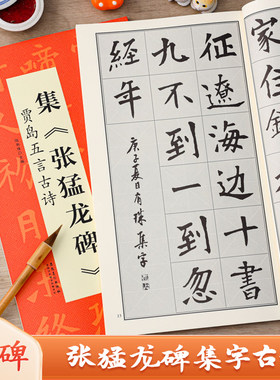 家住錦
征遼海边十書
九不到一到忽
經年
庚子夏日有珠集字
集《张猛龙碑》
贾岛五言古诗
碑
张猛龙碑集字古